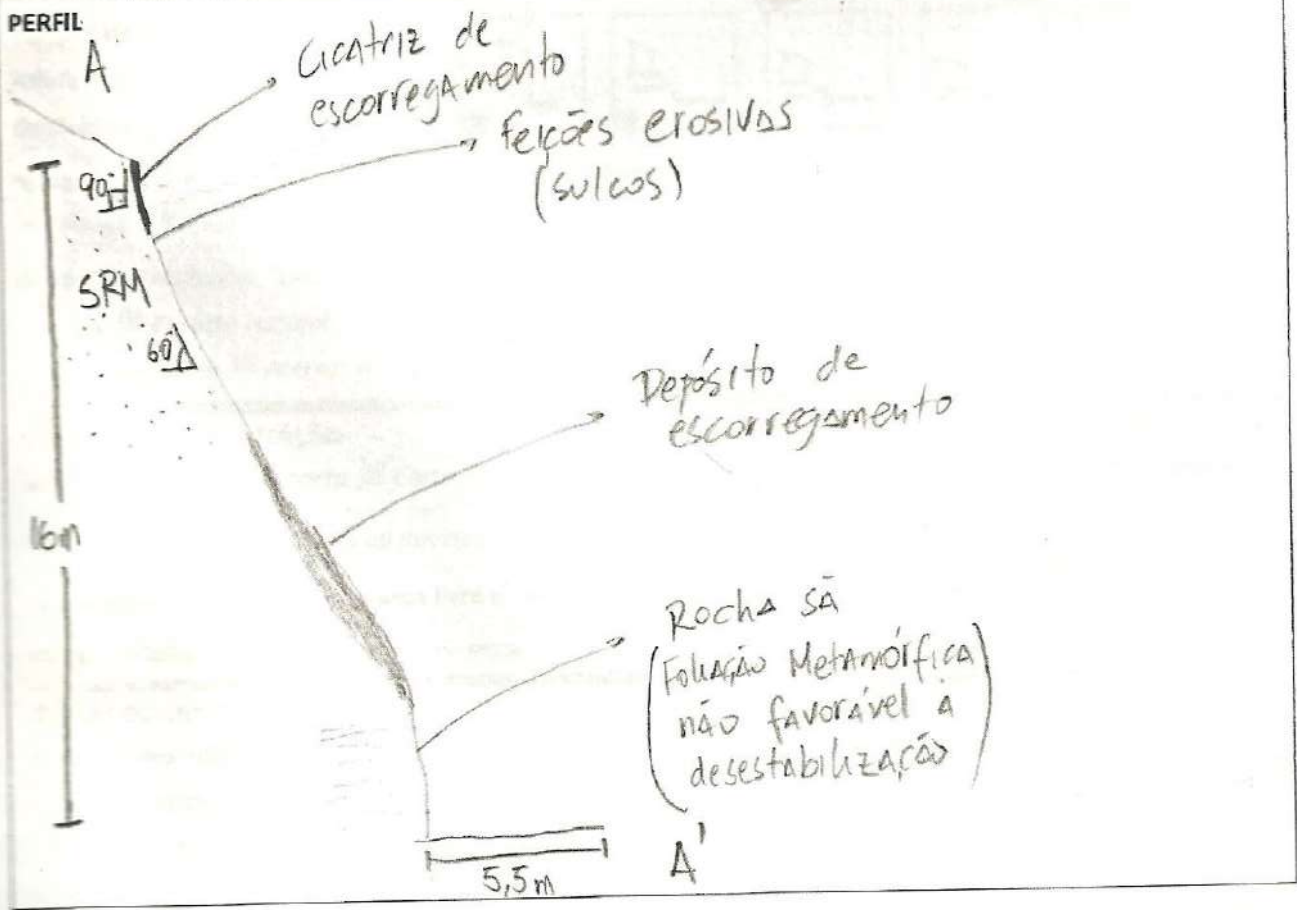 PERFIL
A
Cicatriz de
escorregamento
feições erosivas
(sulcos)
90°
SRM
60°
Depósito de
escorregamento
16m
Rocha sã
(Foliação Metamórfica
não favorável à
desestabilização)
A'
5,5m